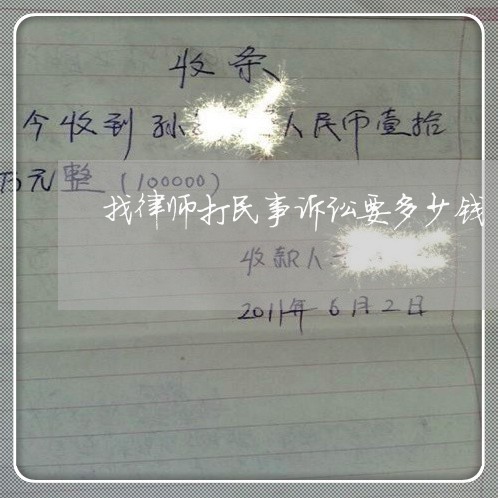 收条
今收到孙 人民币壹拾
万元整（100000）
找律师打民事诉讼要多少钱
收款人
2011年6月2日